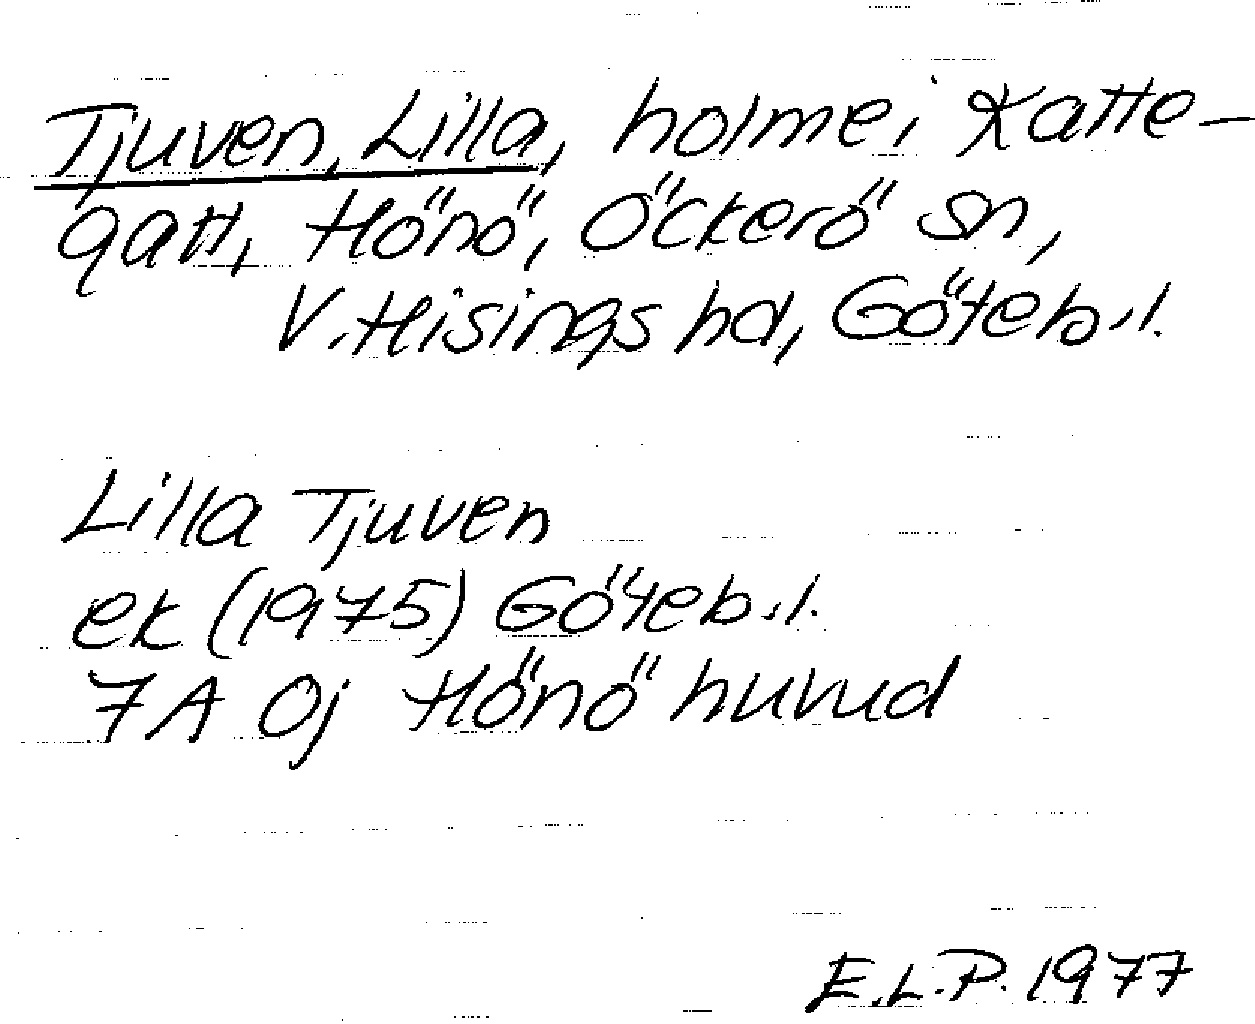 Tjuven, Lilla, holme i Katte-
gatt, Hönö, Öckerö sn,
V. Hisings hd, Göteb. l.
Lilla Tjuven
ek (1975) Göteb. l.
7A 0j Hönö huvud
E.L.P. 1977